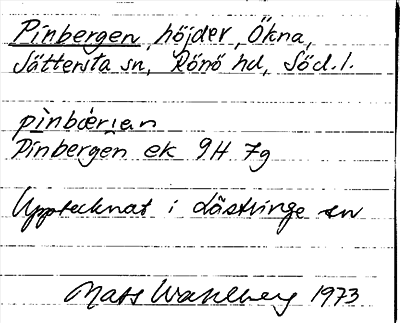 Pinbergen, höjder, Ökna,
Sättersta sn, Rönö hd, Söd.l.
pìnbæ̀rjan
Pinbergen ek 9H 7g
Upptecknat i Lästringe sn
Mats Wahlberg 1973